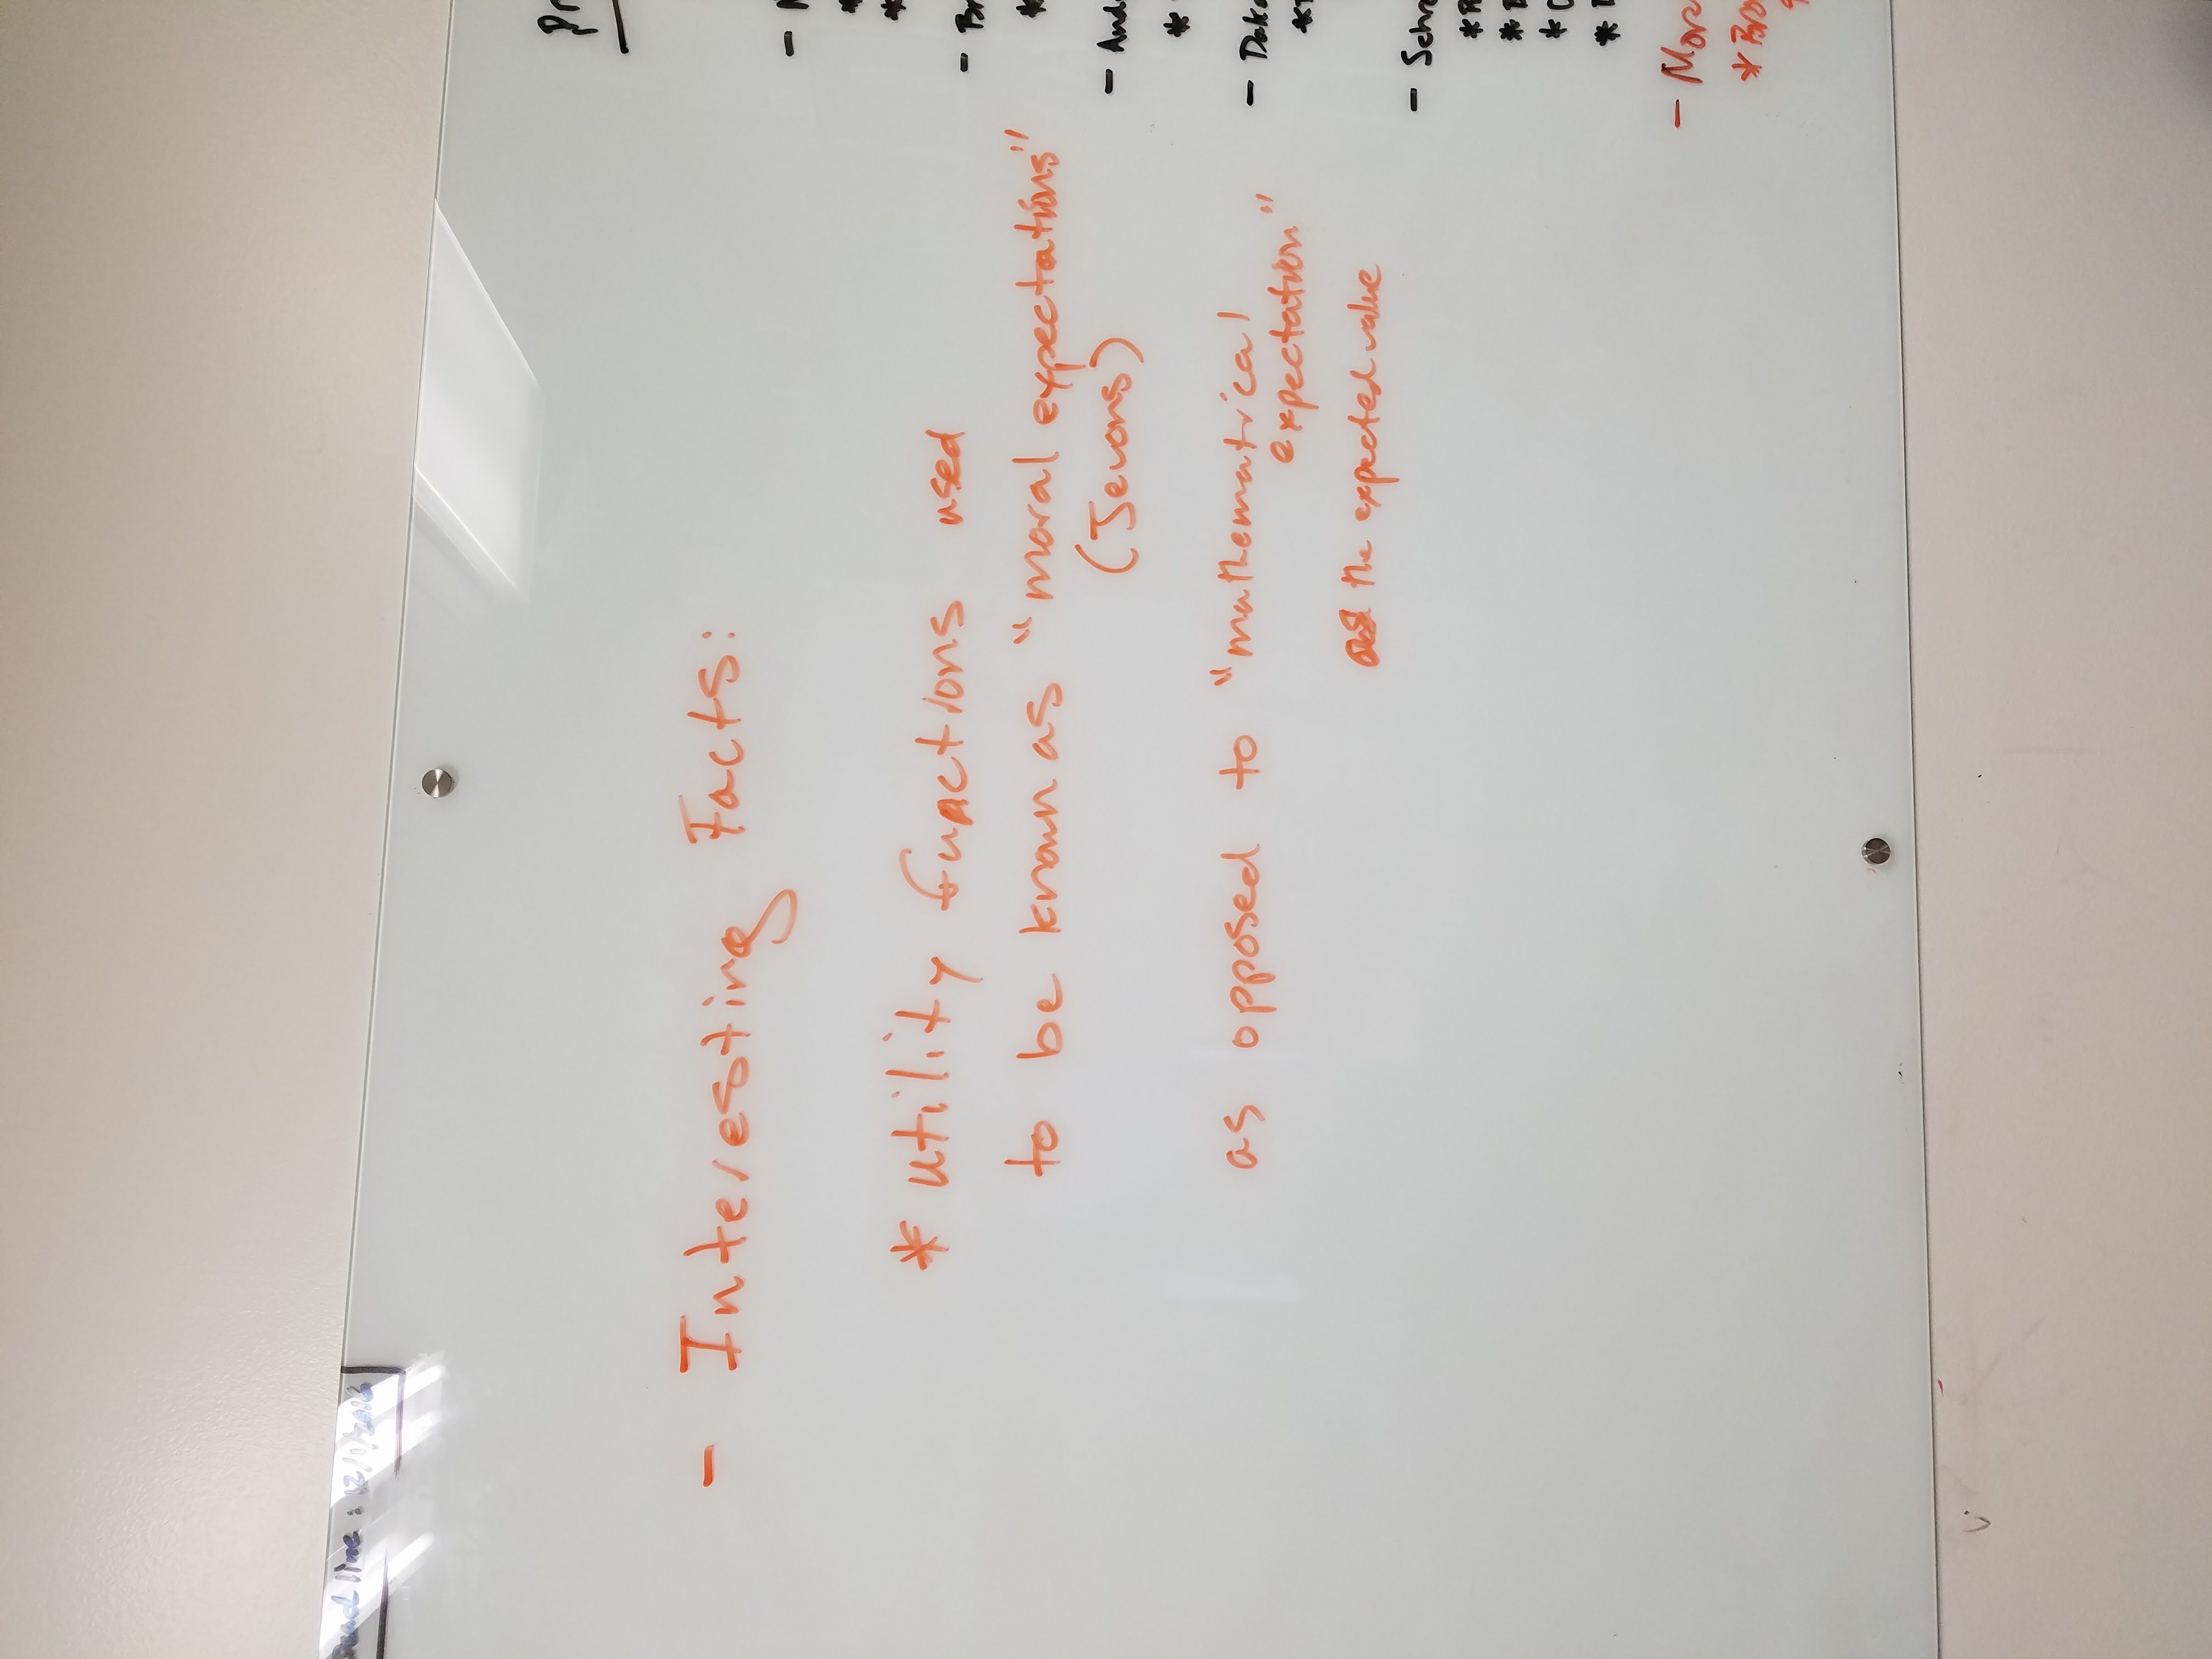 Deadline : 12/1/2016
- Interesting Facts:
* utility functions used
to be known as "moral expectations"
(Jevons)
as opposed to "mathematical
expectation"
as the expected value
Pr
-
*
*
- Br
*
- And
*
- Dak
*
- Schr
*
*
*
*
- Mor
* Bro